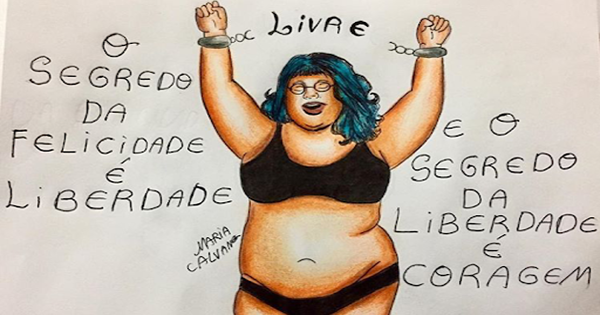 LIVRE
O
SEGREDO
DA
FELICIDADE
É
LIBERDADE
E O
SEGREDO
DA
LIBERDADE
É
CORAGEM
MARIA
CALVANO